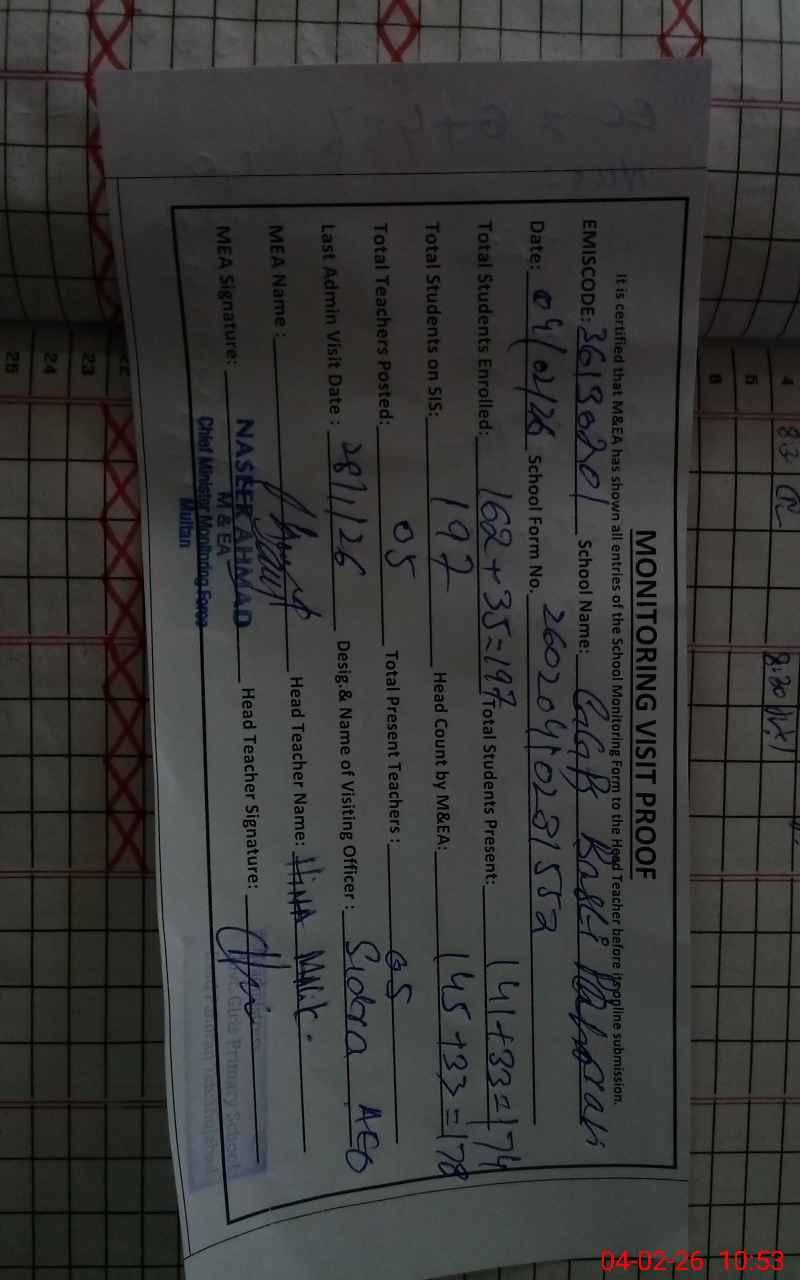 MONITORING VISIT PROOF
It is certified that M&EA has shown all entries of the School Monitoring Form to the Head Teacher before its online submission.
EMISCODE: 36130201 School Name: GGPS Basti
Date: 04/02/26 School Form No. 260204102815 52
Total Students Enrolled: 162+35=197 Total Students Present: 141+33=174
Total Students on SIS: 197 Head Count by M&EA: 145+33=178
Total Teachers Posted: 05 Total Present Teachers: 05
Last Admin Visit Date: 28/1/26 Desig.& Name of Visiting Officer: Sidra AEO
MEA Name: Head Teacher Name: HiNA Malik.
MEA Signature: Head Teacher Signature:
NASEER AHMAD
M & EA
Chief Minister Monitoring Force
Multan
Girls Primary School
22
23
24
25
4
5
6
8:3
8:30
04-02-26 10:53